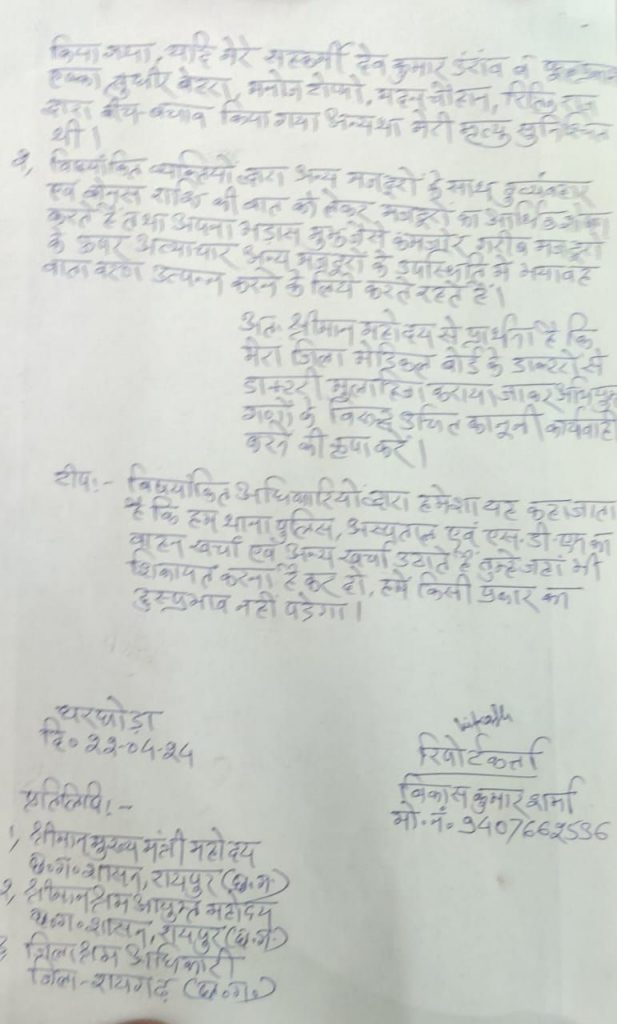 किया गया, यदि मेरे सहकर्मी देव कुमार उरांव व
एक्का, सुधीर बेहरा, मनोज टोप्पो, मदन चौहान,
द्वारा बीच बचाव किया गया अन्यथा मेरी मृत्यु सुनिश्चित
थी।
2, विषयांकित व्यक्तियों द्वारा अन्य मजदूरों के साथ दुर्व्यवहार
एवं बोनस राशि की बात को लेकर मजदूरों का आर्थिक शोषण
करते हैं तथा अपना भड़ास मुझ जैसे कमजोर गरीब मजदूरों
के ऊपर अत्याचार अन्य मजदूरों के उपस्थिति में भयावह
वातावरण उत्पन्न करने के लिये करते रहते हैं।
अतः श्रीमान महोदय से प्रार्थना है कि
मेरा जिला मेडिकल बोर्ड के डाक्टरो से
डाक्टरी मुलाहिजा कराया जाकर
गणों के विरुद्ध उचित कानूनी कार्यवाही
करने की कृपा करें।
टीप:- विषयांकित अधिकारियों द्वारा हमेशा यह कहा जाता
है कि हम थाना पुलिस, अस्पताल एवं एस.डी.एम का
वाहन खर्चा एवं अन्य खर्चा उठाते हैं तुम्हे जहां भी
शिकायत करना है कर दो, हमें किसी प्रकार का
दुस्प्रभाव नहीं पडेगा।
घरघोड़ा
दि० 22-04-24
रिपोर्टकर्ता
विकास कुमार शर्मा
मो.नं. 9407662596
प्रतिलिपि:-
1, श्रीमान मुख्य मंत्री महोदय
छ.ग. शासन, रायपुर (छ.ग.)
2, श्रीमान श्रम आयुक्त महोदय
छ.ग. शासन, रायपुर (छ.ग.)
3 जिला श्रम अधिकारी
जिला-रायगढ़ (छ.ग.)